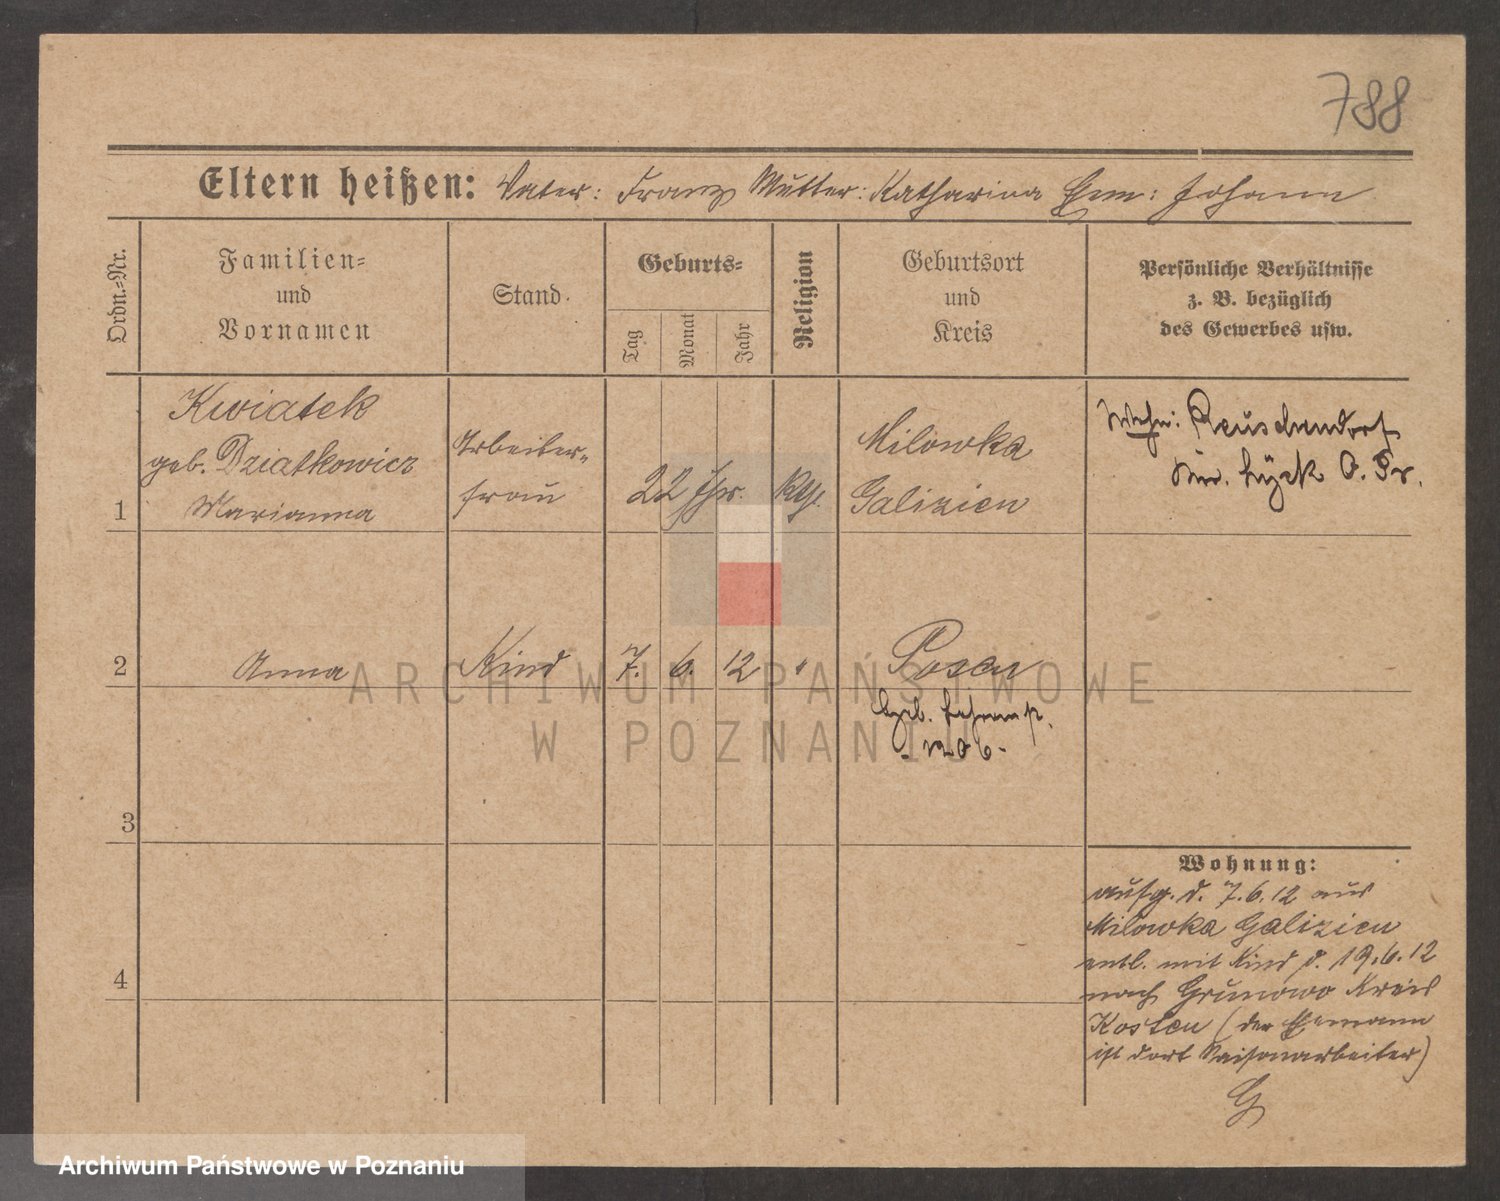 788
Eltern heißen: Vater: Franz Mutter: Katharina Ehm: Johann
Ordn.-Nr.
Familien-
und
Vornamen
Stand.
Geburts-
Tag
Monat
Jahr
Religion
Geburtsort
und
Kreis
Persönliche Verhältnisse
z. B. bezüglich
des Gewerbes usw.
1
Kwiatek
geb. Dziatkowicz
Marianna
Arbeiter-
frau
22 Jhr.
Kth.
Milowka
Galizien
Wohn: Reuschendorf
Kr. Lyck O. Pr.
2
Anna
Kind
7. 6. 12
"
Posen
Geb.
1206.
3
4
Wohnung:
aufg. d. 7.6.12 aus
Milowka Galizien
entl. mit Kind d. 19.6.12
nach Grunowo Kreis
Kosten (der Ehemann
ist dort Saisonarbeiter)
G
ARCHIWUM PAŃSTWOWE
W POZNANIU
Archiwum Państwowe w Poznaniu